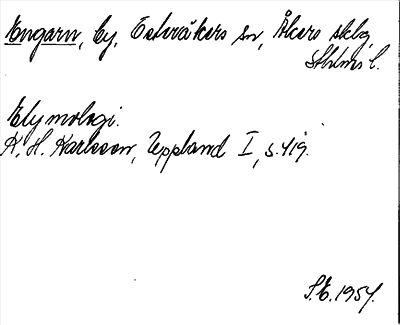 Engarn, by, Östervåkers sn, Åkers sklg,
Sthlms l.
Etymologi.
K. H. Karlsson, Uppland I, s. 419.
S.E. 1954.